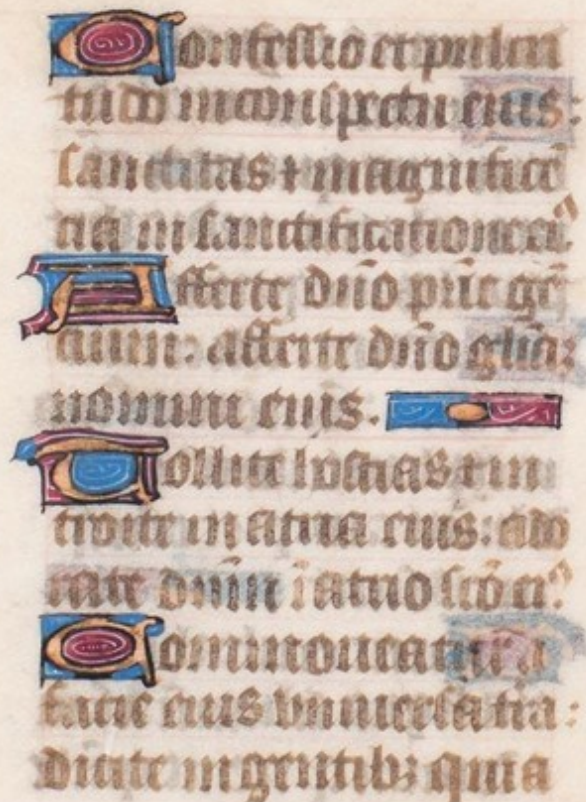 Confessio et pulcri
tudo in conspectu eius:
sanctitas ⁊ magnificē
tia in sanctificatione ei⁹.
Afferte dn̄o pr̄ie gē
cium: afferte dn̄o glīaȝ
nomini eius.
Tollite hostias ⁊ in
troite in atria eius: ado
rate dn̄m ī atrio sc̄o ei⁹
Commoueatur a
facie eius vniuersa tr̄a:
dicite in gentibȝ quia